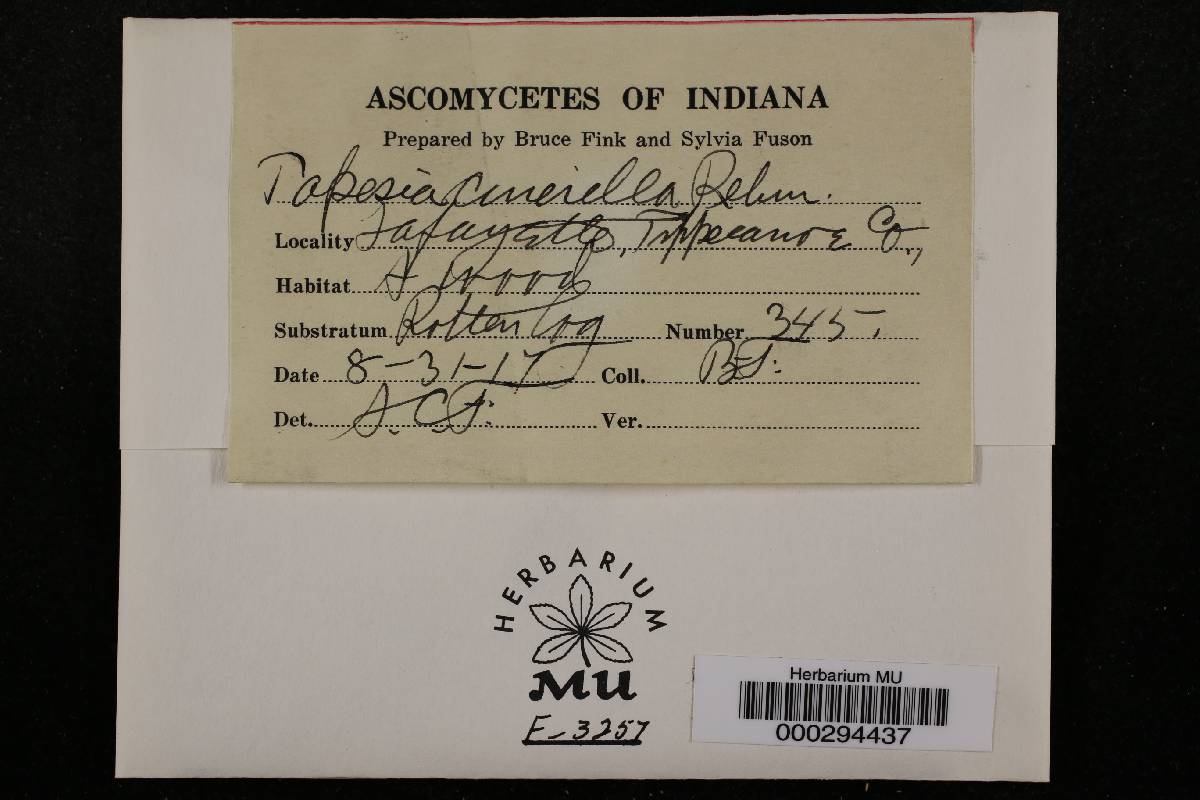 ASCOMYCETES OF INDIANA
Prepared by Bruce Fink and Sylvia Fuson
Tapesia cinerella Rehm.
Locality Lafayette, Tippecanoe Co.,
Habitat Wood
Substratum Rotten log Number 345.
Date 8-31-17 Coll. B.F.
Det. S.C.F. Ver.
HERBARIUM
MU
F-3257
Herbarium MU
000294437